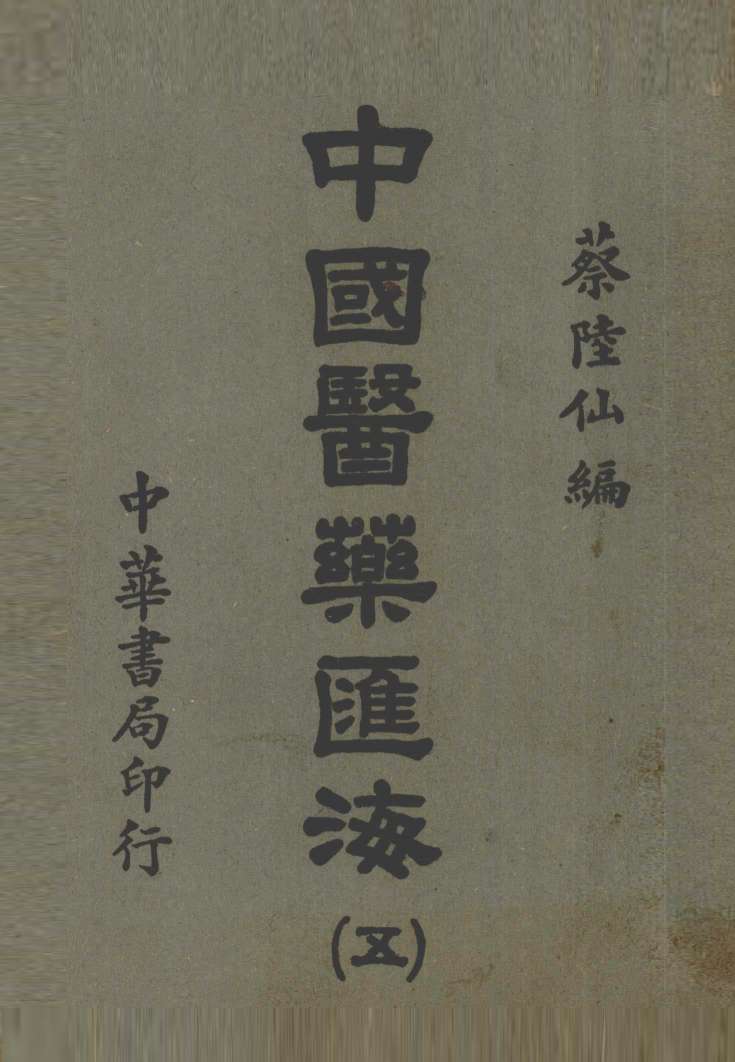 蔡陸仙編
中國醫藥匯海
(五)
中華書局印行